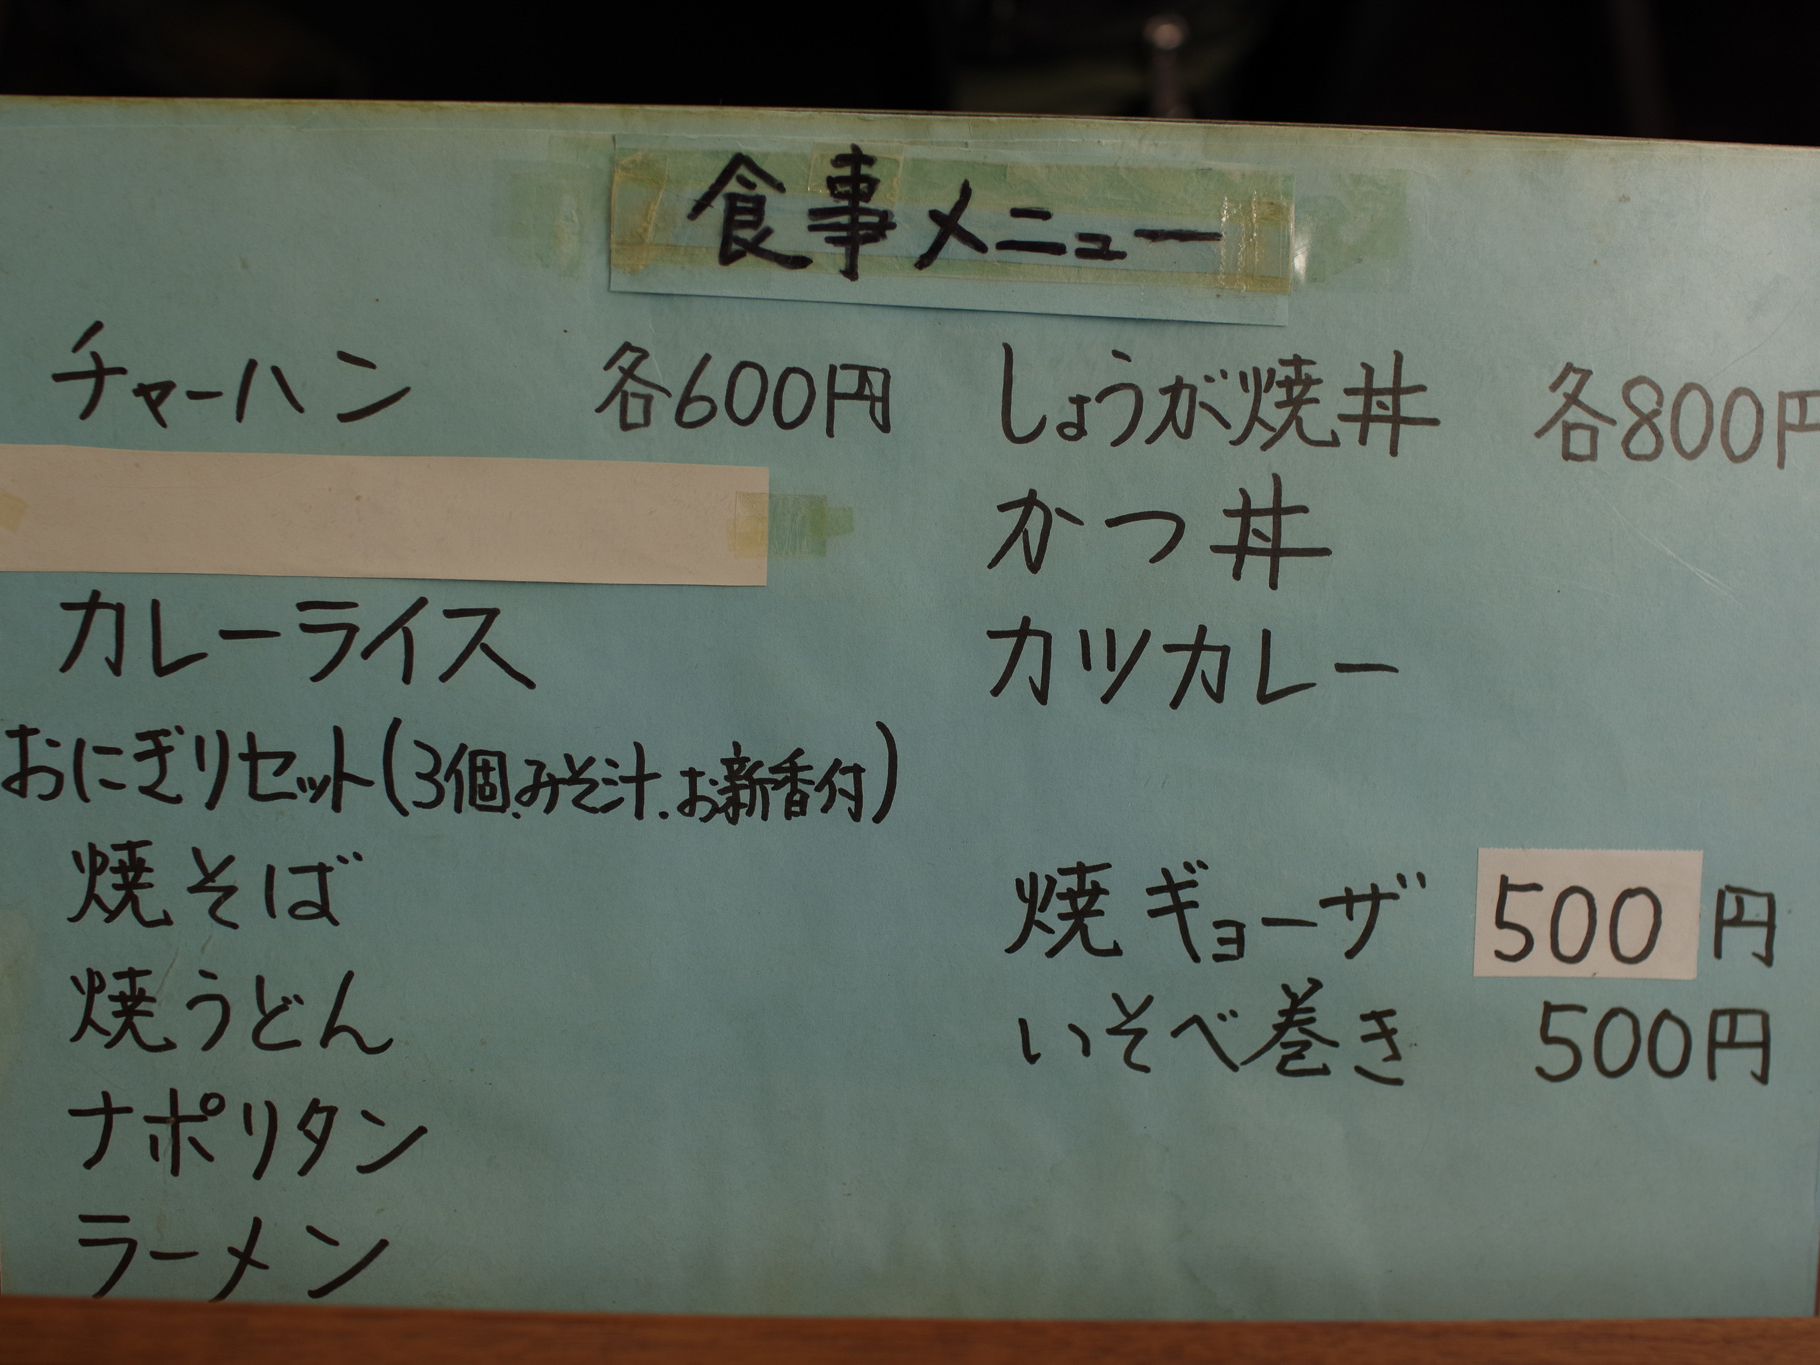 食事メニュー
チャーハン 各600円
カレーライス
おにぎりセット(3個.みそ汁.お新香付)
焼そば
焼うどん
ナポリタン
ラーメン
しょうが焼丼 各800円
かつ丼
カツカレー
焼ギョーザ 500円
いそべ巻き 500円